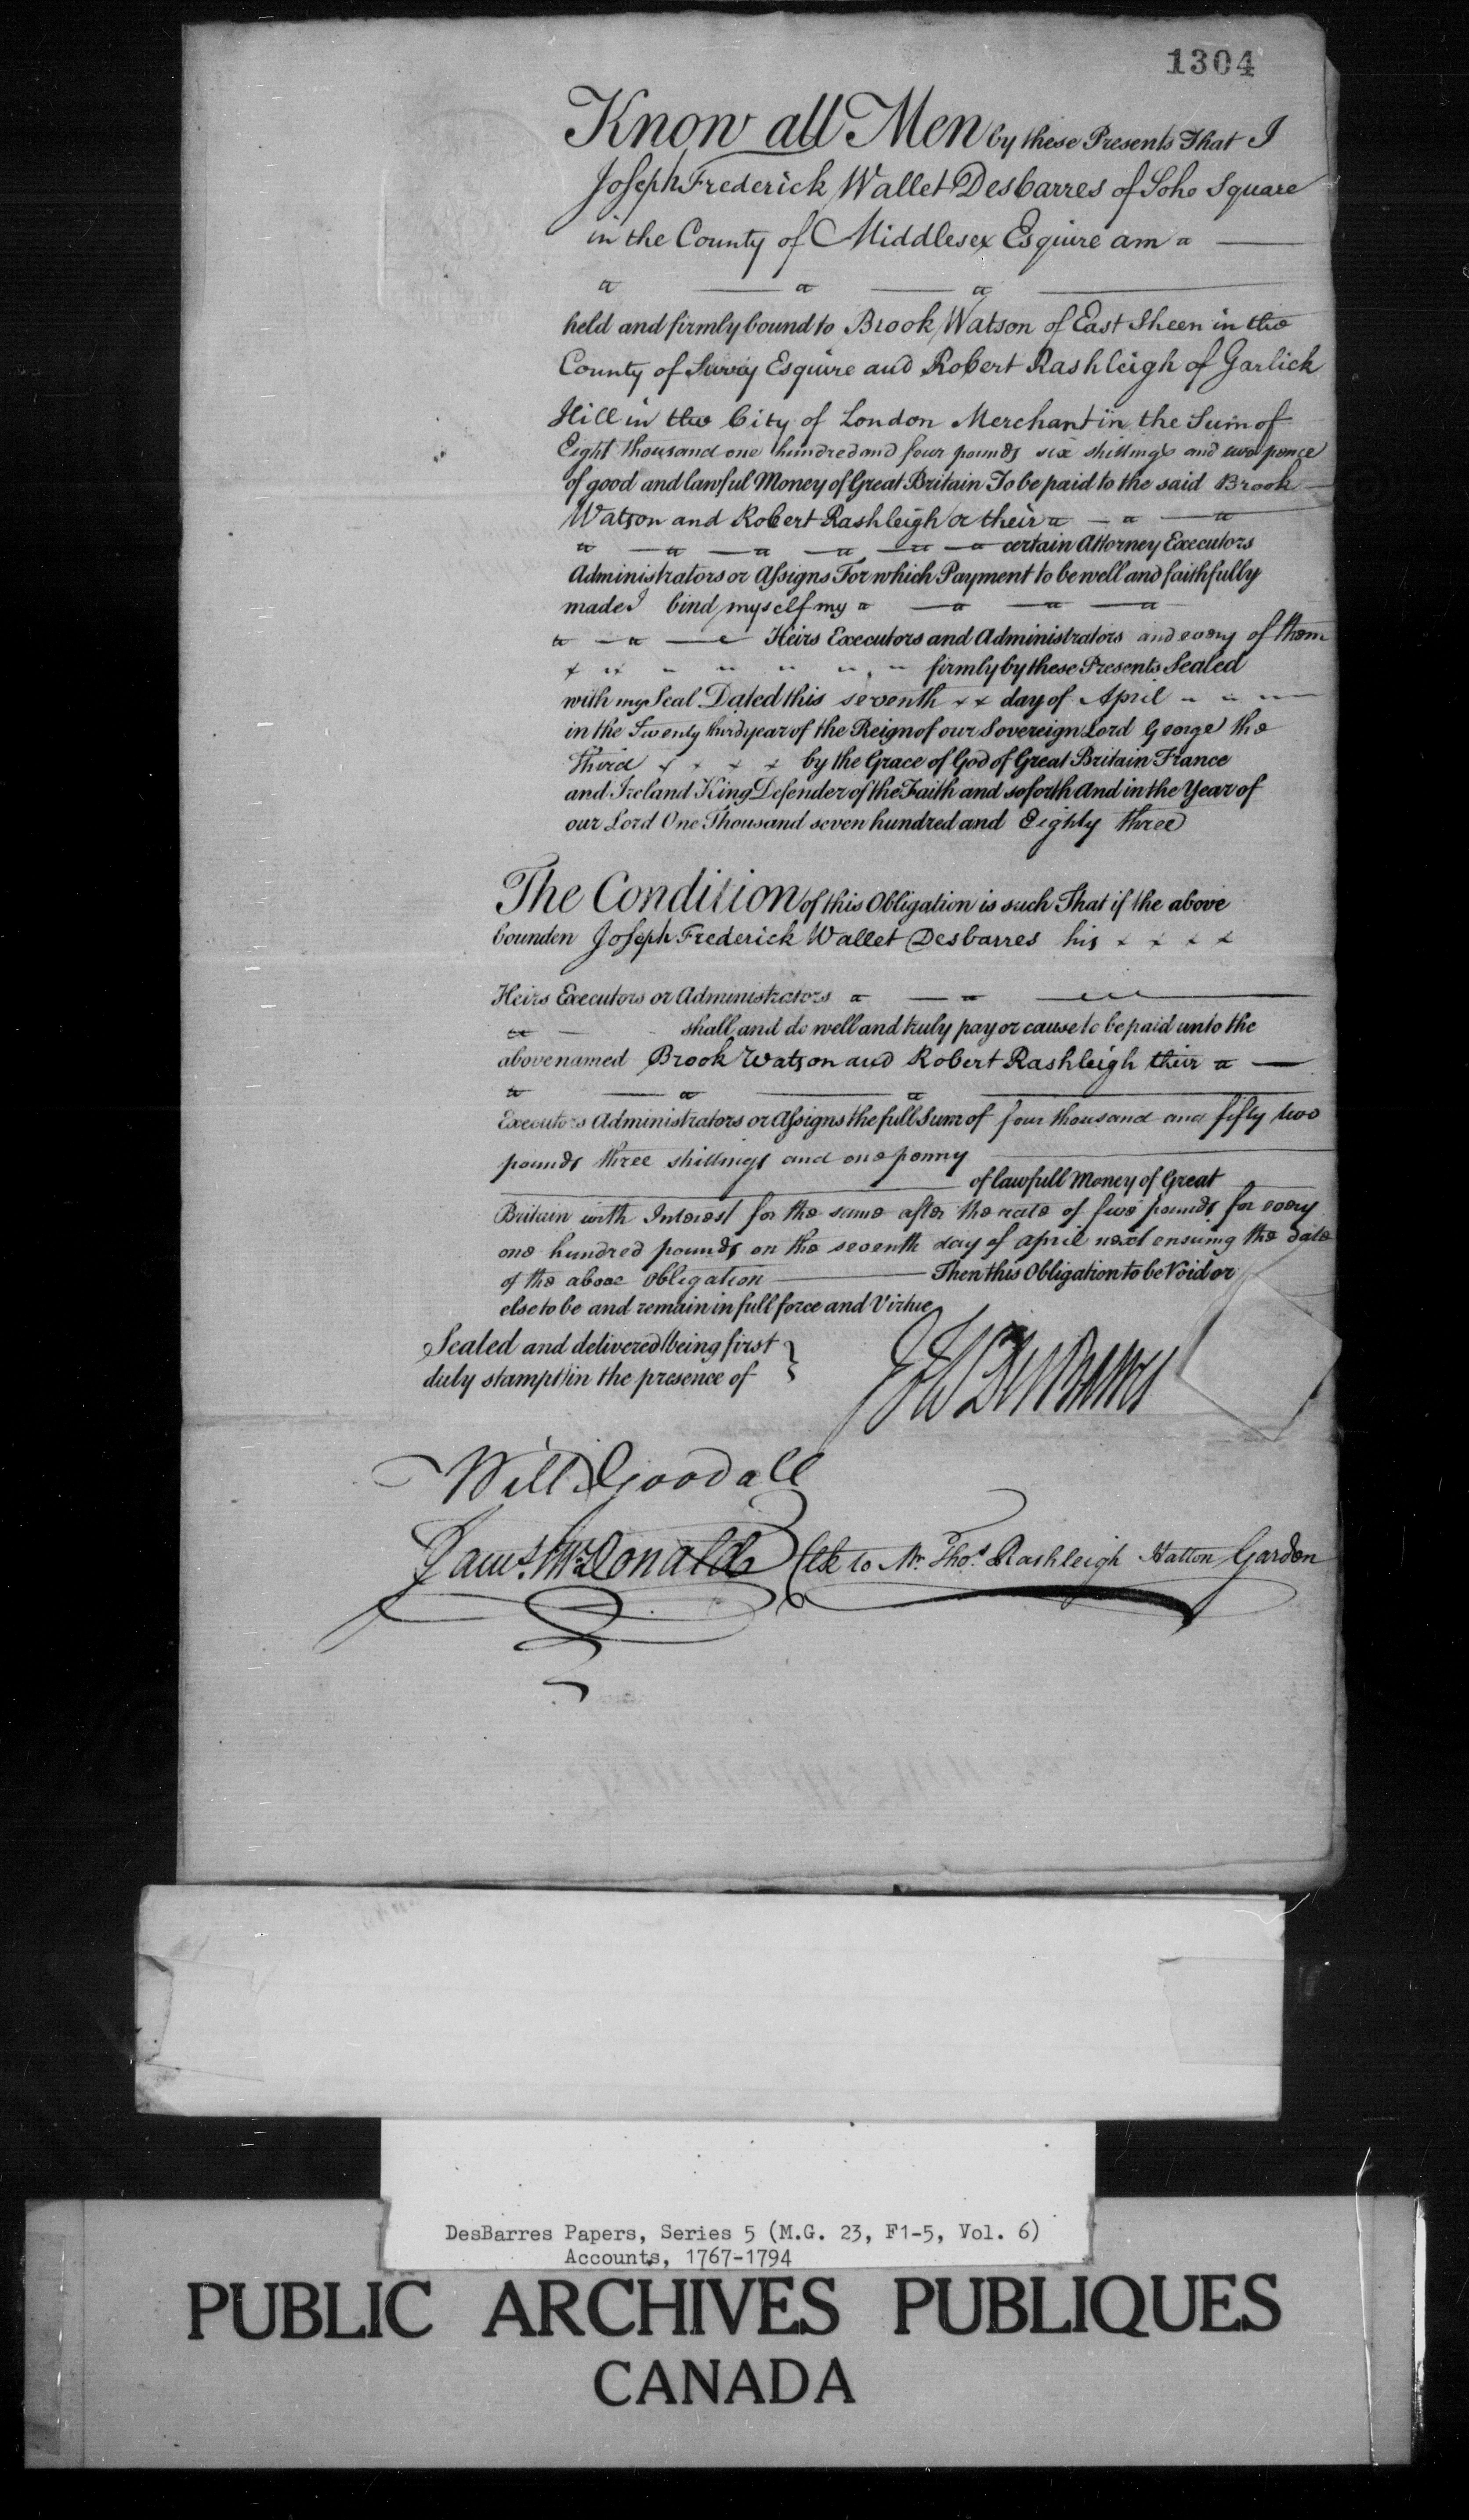 1304
Know all Men by these Presents That I
Joseph Frederick Wallet Desbarres of Soho Square
in the County of Middlesex Esquire am
held and firmly bound to Brook Watson of East Sheen in the
County of Surry Esquire and Robert Rashleigh of Garlick
Hill in the City of London Merchant in the Sum of
Eight thousand one hundred and four pounds six shillings and two pence
of good and lawful Money of Great Britain To be paid to the said Brook
Watson and Robert Rashleigh or their
certain Attorney Executors
Administrators or Assigns For which Payment to be well and faithfully
made I bind myself my
Heirs Executors and Administrators and every of them
firmly by these Presents Sealed
with my Seal Dated this seventh day of April
in the Twenty third year of the Reign of our Sovereign Lord George the
Third by the Grace of God of Great Britain France
and Ireland King Defender of the Faith and soforth And in the Year of
our Lord One Thousand seven hundred and Eighty three
The Condition of this Obligation is such That if the above
bounden Joseph Frederick Wallet Desbarres his
Heirs Executors or Administrators
shall and do well and truly pay or cause to be paid unto the
above named Brook Watson and Robert Rashleigh their
Executors Administrators or Assigns the full Sum of four thousand and fifty two
pounds three shillings and one penny
of lawfull Money of Great
Britain with Interest for the same after the rate of five pounds for every
one hundred pounds on the seventh day of April next ensuing the date
of the above Obligation Then this Obligation to be Void or
else to be and remain in full force and Virtue
Sealed and delivered (being first
duly stampt) in the presence of
JFW DesBarres
Will Goodall
James McDonald Clk to Mr. Thos. Rashleigh Hatton Garden
DesBarres Papers, Series 5 (M.G. 23, F1-5, Vol. 6)
Accounts, 1767-1794
PUBLIC ARCHIVES PUBLIQUES
CANADA